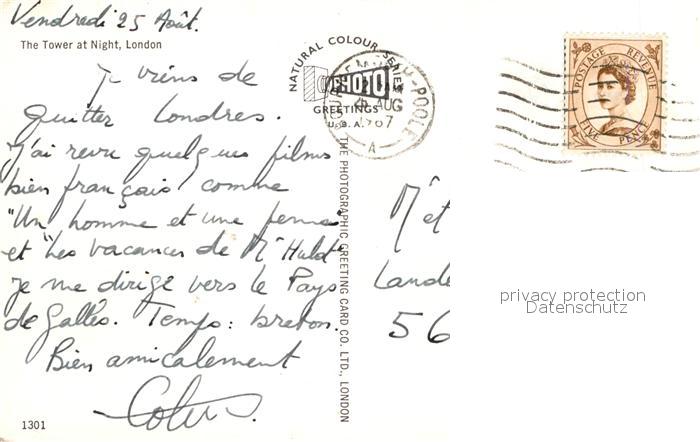 Vendredi 25 Août.
The Tower at Night, London
Je viens de
quitter Londres.
J'ai revu quelques films
bien français comme
"Un homme et une femme"
et "Les vacances de Mr Hulot"
je me dirige vers le Pays
de Galles. Temps: breton.
Bien amicalement
1301
NATURAL COLOUR SERIES
PHOTO
GREETINGS
U.S.A.
POOLE
AUG
A
THE PHOTOGRAPHIC GREETING CARD CO. LTD., LONDON
POSTAGE REVENUE
FIVE PENCE
M et
Lande
56
privacy protection
Datenschutz